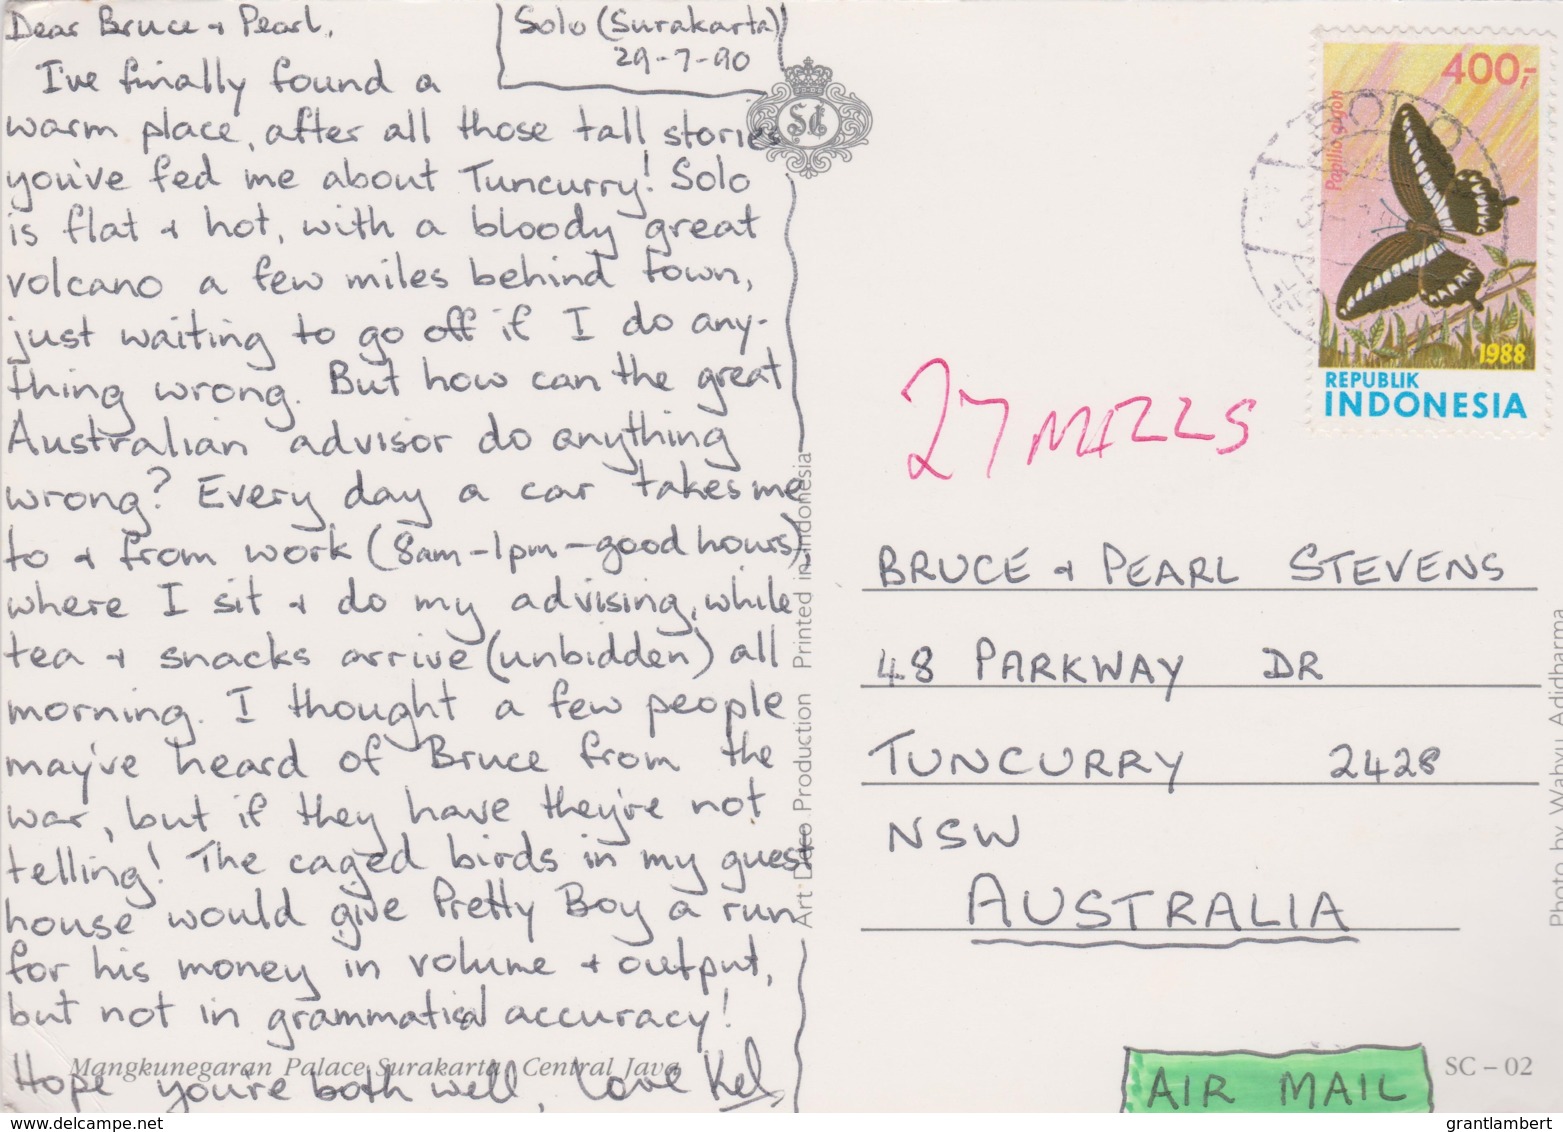 Dear Bruce + Pearl,
Solo (Surakarta)
29-7-90
I've finally found a
warm place, after all those tall stories
you've fed me about Tuncurry! Solo
is flat + hot, with a bloody great
volcano a few miles behind town,
just waiting to go off if I do any-
thing wrong. But how can the great
Australian advisor do anything
wrong? Every day a car takes me
to + from work (8am-1pm-good hours),
where I sit + do my advising, while
tea + snacks arrive (unbidden) all
morning. I thought a few people
may've heard of Bruce from the
war, but if they have they're not
telling! The caged birds in my guest
house would give Pretty Boy a run
for his money in volume + output,
but not in grammatical accuracy!
Hope you're both well, Love Kel
Mangkunegaran Palace Surakarta, Central Java
SC
Art Deco Production Printed in Indonesia
400,-
Papilio gigon
1988
REPUBLIK
INDONESIA
SOLO
27 MILLS
BRUCE + PEARL STEVENS
48 PARKWAY DR
TUNCURRY 2428
NSW
AUSTRALIA
Photo by Wahyu Adidharma
AIR MAIL
SC – 02
www.delcampe.net
grantlambert